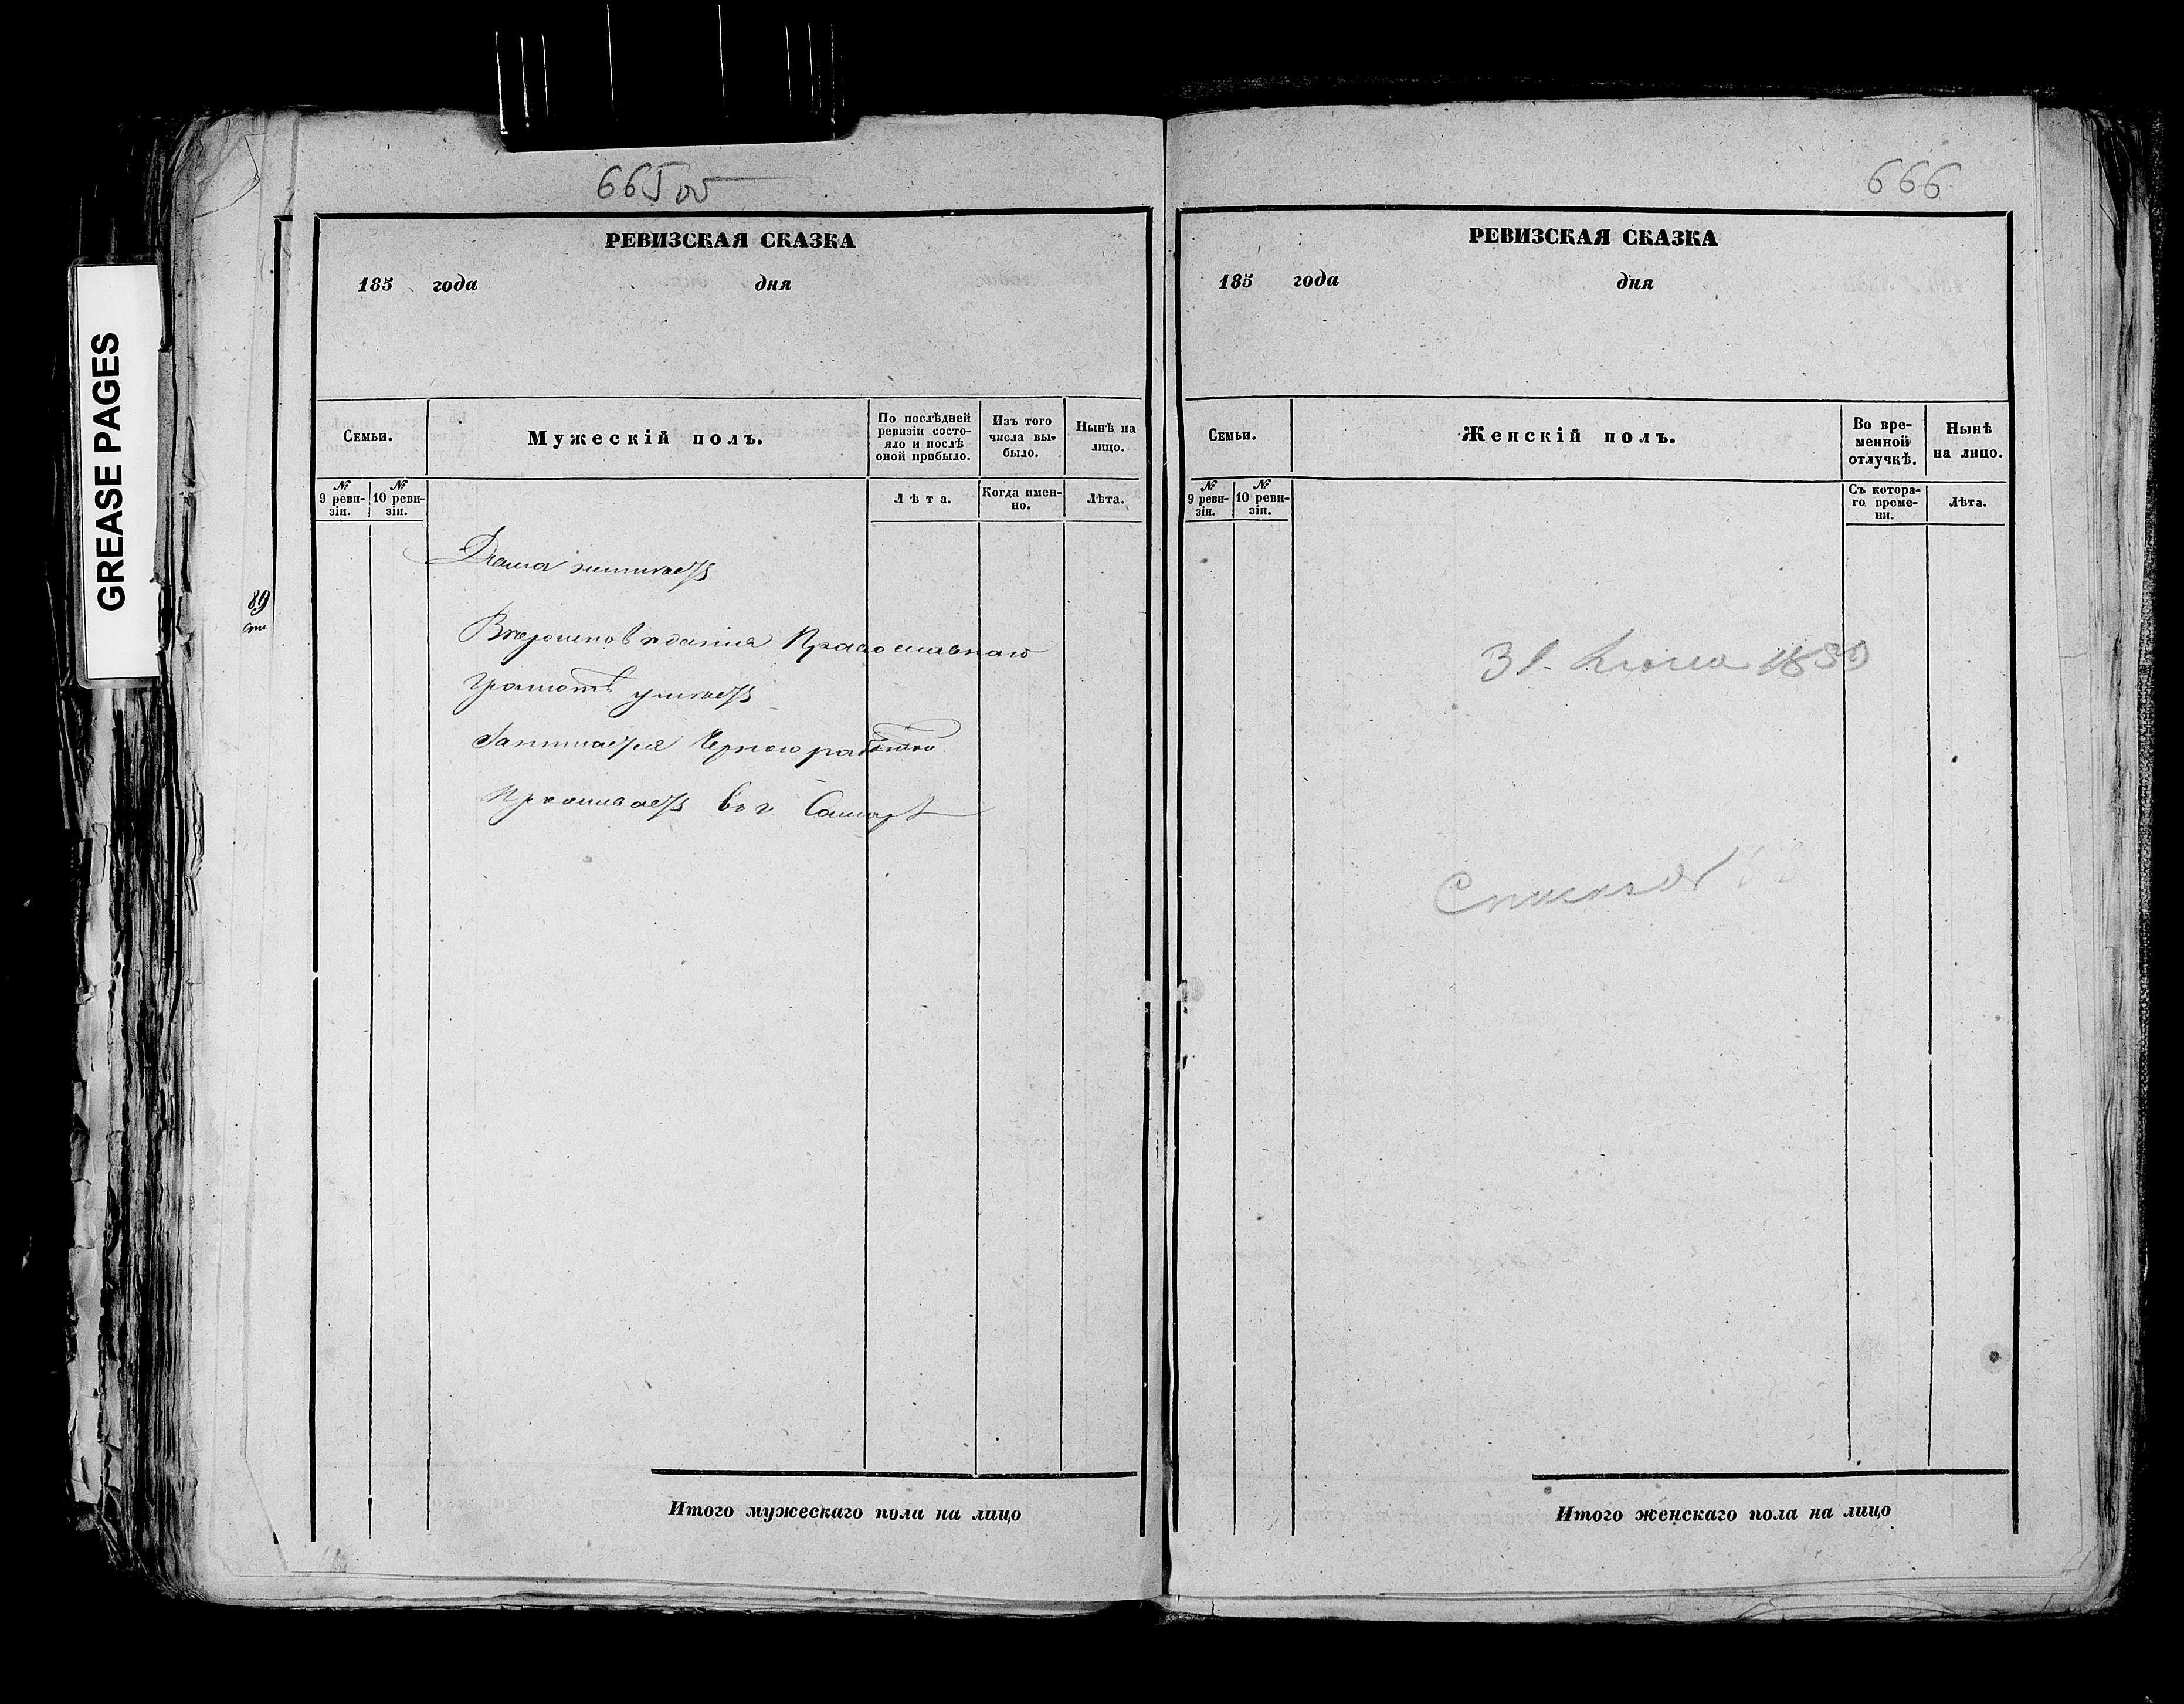 GREASE PAGES
665 об
РЕВИЗСКАЯ СКАЗКА
185 года дня
Семьи.
Мужескій полъ.
По послѣдней ревизіи состо-
яло и послѣ оной прибыло.
Изъ того числа вы-
было.
Нынѣ на лицо.
№ 9 реви-
зіи.
№ 10 реви-
зіи.
Лѣта.
Когда имен-
но.
Лѣта.
89
Дома неимѣетъ
Вѣроисповѣданія Православнаго
Грамотѣ умѣетъ
Занимается Черною работою
Проживаетъ въ г. Самарѣ
Итого мужескаго пола на лицо
666
РЕВИЗСКАЯ СКАЗКА
185 года дня
Семьи.
Женскій полъ.
Во вре-
менной
отлучкѣ.
Нынѣ
на лицо.
№ 9 реви-
зіи.
№ 10 реви-
зіи.
Съ котора-
го време-
ни.
Лѣта.
31 1859
Итого женскаго пола на лицо